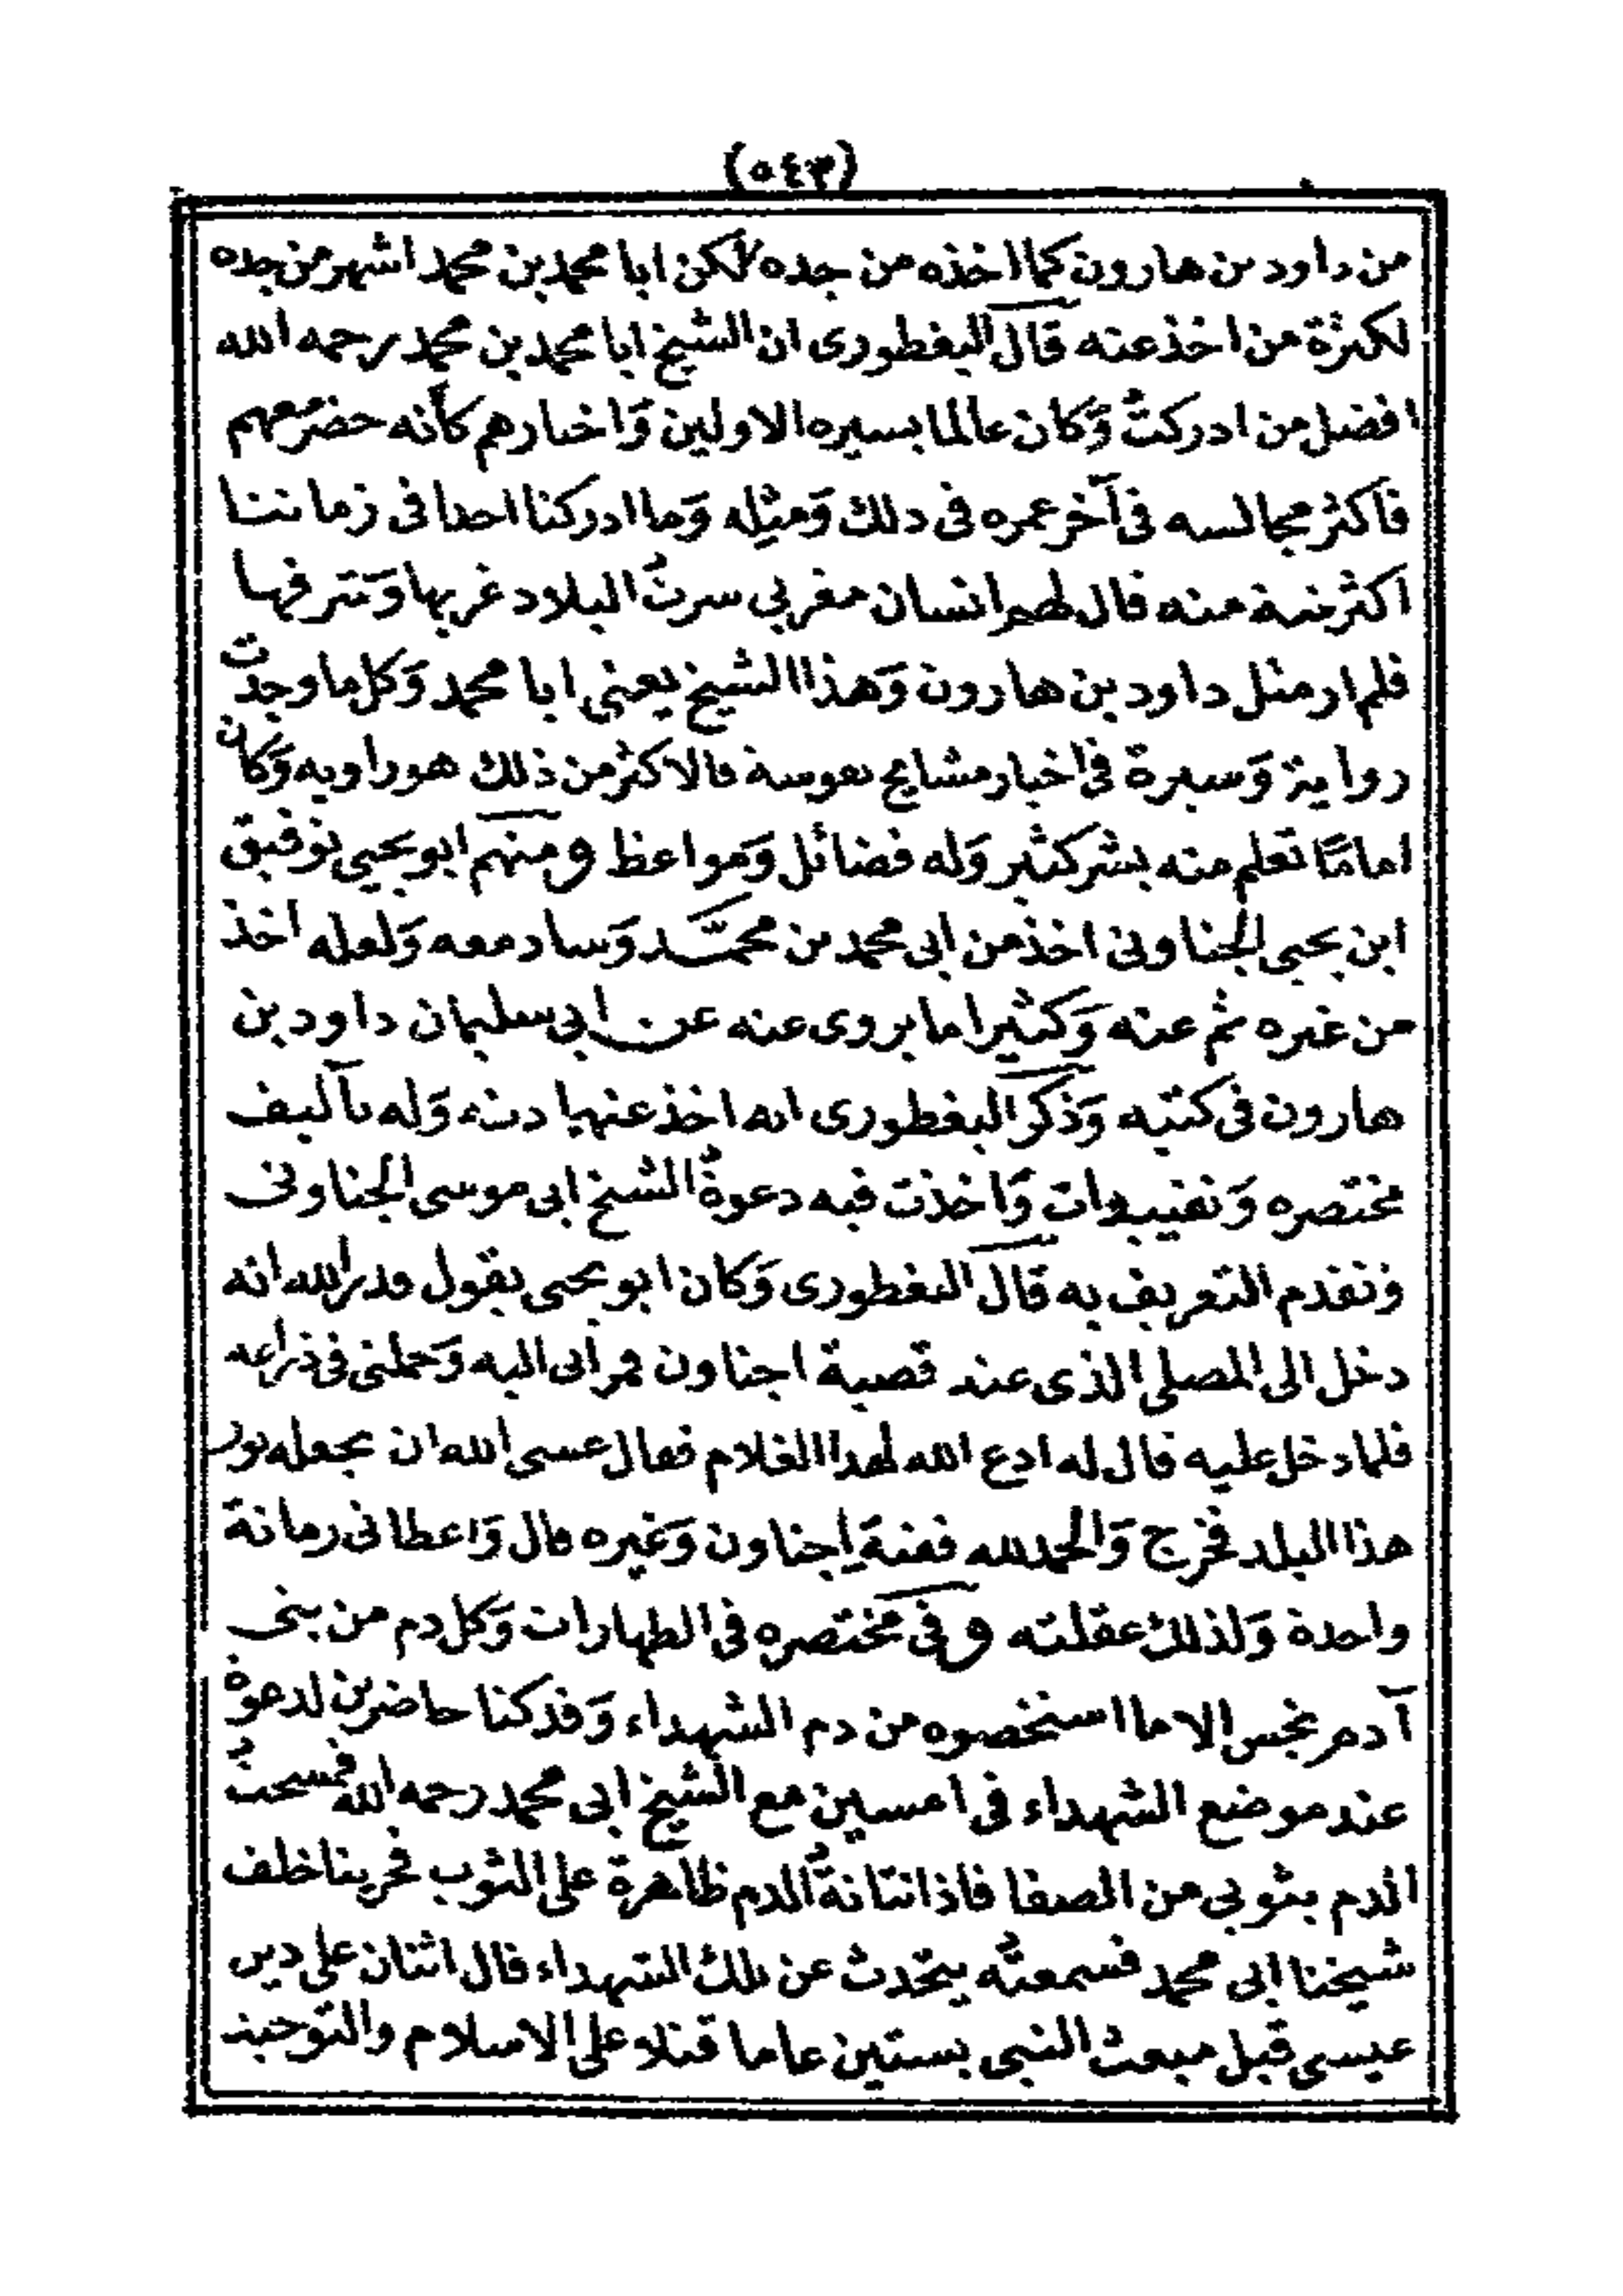 (٥٤٣)
من داود بن هارون كما اخذه من جده لكن ابا محمد بن محمد اشهر من جده
لكثرة من اخذ عنه قال البغطورى ان الشيخ ابا محمد بن محمد رحمه الله
افضل من ادركتُ وَكان عالما بسيره الاولين وَاخبارهم كأنه حضر معهم
فأكثر مجالسه فى آخر عمره فى ذلك وَمثلِه وَما ادركنا احدا فى زماننا
اكثر منه قال لهم انسان مغربى سرتُ البلاد غربها وَشرقها
فلم ار مثل داود بن هارون وَهذا الشيخ يعنى ابا محمد وَكل ما وجدت
رواية وَسيرة فى اخبار مشايخ نفوسة فالاكثر من ذلك هو راويه وَكان
امامًا تعلم منه بشر كثير وَله فضائل وَمواعظ ومنهم ابو يحيى توفيق
ابن يحيى الجناونى اخذ من ابى محمد بن محمّد وَساد معه وَلعله اخذ
من غيره ثم عنه وَكثيرا ما يروى عنه عن ابى سليمان داود بن
هارون فى كتبه وَذكر البغطورى انه اخذ عنهما دينه وَله تآليف
مختصره وَتقييدات وَاخذت فيه دعوةُ الشيخ ابى موسى الجناونى
وتقدم التعريف به قال البغطورى وَكان ابو يحيى يقول قدر الله انه
دخل الى المصلى الذى عند قصبة اجناون فمر ابى اليه وَحملنى فى ذراعه
فلما دخل عليه قال له ادع الله لهذا الغلام فقال عسى الله ان يجعله نور
هذا البلد فخرج وَالحمد لله فقيهَ اِجناون وَغيره قال وَاعطانى رمانة
واحدة وَلذلك عقلته وفى مختصره فى الطهارات وَكل دم من بنى
آدم نجس الا ما استخصوه من دم الشهداء وَقد كنا حاضرين لدعوة
عند موضع الشهداء فى امسين مع الشيخ ابى محمد رحمه الله فمسحتُ
الدم بثوبى من الصفا فاذا نتانةُ الدم ظاهرة على الثوب فجرينا خلف
شيخنا ابى محمد فسمعتُه يتحدث عن تلك الشهداء قال اثنان على دين
عيسى قبل مبعث النبى بستين عاما قتلا على الاسلام والتوحيد